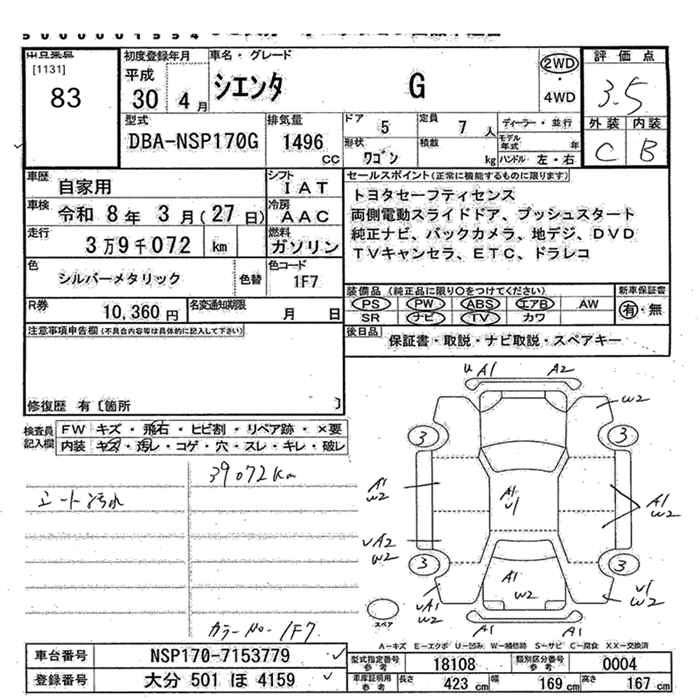 出品番号 初度登録年月 車名・グレード 評価点
[1131] 83
平成 30 4月 シエンタ G 2WD・4WD 3.5
型式 排気量 ドア 5 定員 7人 ディーラー・並行 外装 内装
DBA-NSP170G 1496cc 形状 ワゴン 積載 kg モデル年式 年 ハンドル 左・右 C B
車歴 自家用 シフト IAT セールスポイント(正常に機能するものに限ります)
車検 令和 8年 3月(27日) 冷房 AAC
走行 3万9千072 km 燃料 ガソリン
トヨタセーフティセンス
両側電動スライドドア、プッシュスタート
純正ナビ、バックカメラ、地デジ、DVD
TVキャンセラ、ETC、ドラレコ
色 シルバーメタリック 色替 色コード 1F7
装備品(純正品に限り○をつけてください) 新車保証書
PS PW ABS エアB AW 有・無
SR ナビ TV カワ
R券 10,360円 名変通知期限 月 日
後日品 保証書・取説・ナビ取説・スペアキー
注意事項申告欄(不具合内容等は具体的に記入して下さい)
修復歴 有〔箇所 〕
検査員記入欄 FW キズ・飛石・ヒビ割・リペア跡・×要
内装 キズ・汚れ・コゲ・穴・スレ・キレ・破レ
39072km
シート汚れ
カラーNo. 1F7
U A1 A2
W2
3 3
A1 W2
A1 U1
A1 W2
UA2 W2
3 3
A1 W2
U1 W2
UA1 W2
A1 A1
スペア
A-キズ E-エクボ U-凹み W-補修跡 S-サビ C-腐食 XX-交換済
車台番号 NSP170-7153779 型式指定番号 参考 18108 類別区分番号 参考 0004
登録番号 大分 501 ほ 4159 車庫証明用 参考 長さ 423cm 幅 169cm 高さ 167cm